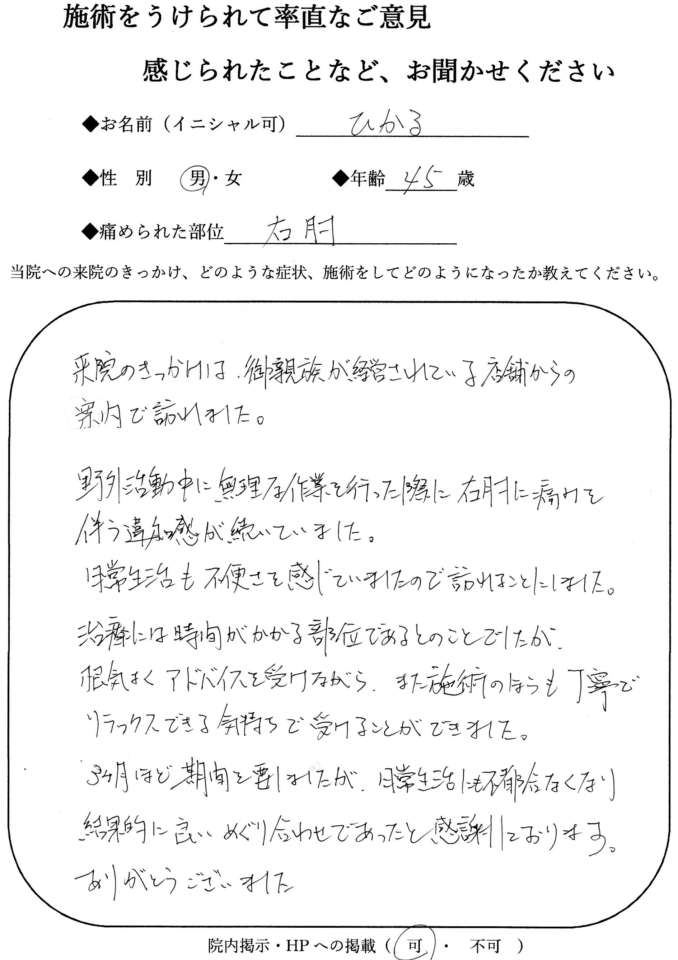 施術をうけられて率直なご意見
感じられたことなど、お聞かせください
◆お名前（イニシャル可） ひかる
◆性　別　男・女　◆年齢 45 歳
◆痛められた部位 右肘
当院への来院のきっかけ、どのような症状、施術をしてどのようになったか教えてください。
来院のきっかけは、御親族が経営されている店舗からの
案内で訪れました。
野外活動中に無理な作業を行った際に右肘に痛みを
伴う違和感が続いていました。
日常生活も不便さを感じていましたので訪れることにしました。
治療には時間がかかる部位であるとのことでしたが、
根気よくアドバイスを受けながら、また施術のほうも丁寧で
リラックスできる気持ちで受けることができました。
3ヶ月ほど期間を要しましたが、日常生活にも不都合なくなり
結果的に良いめぐり合わせであったと感謝しております。
ありがとうございました
院内掲示・HPへの掲載（ 可 ・ 不可 ）